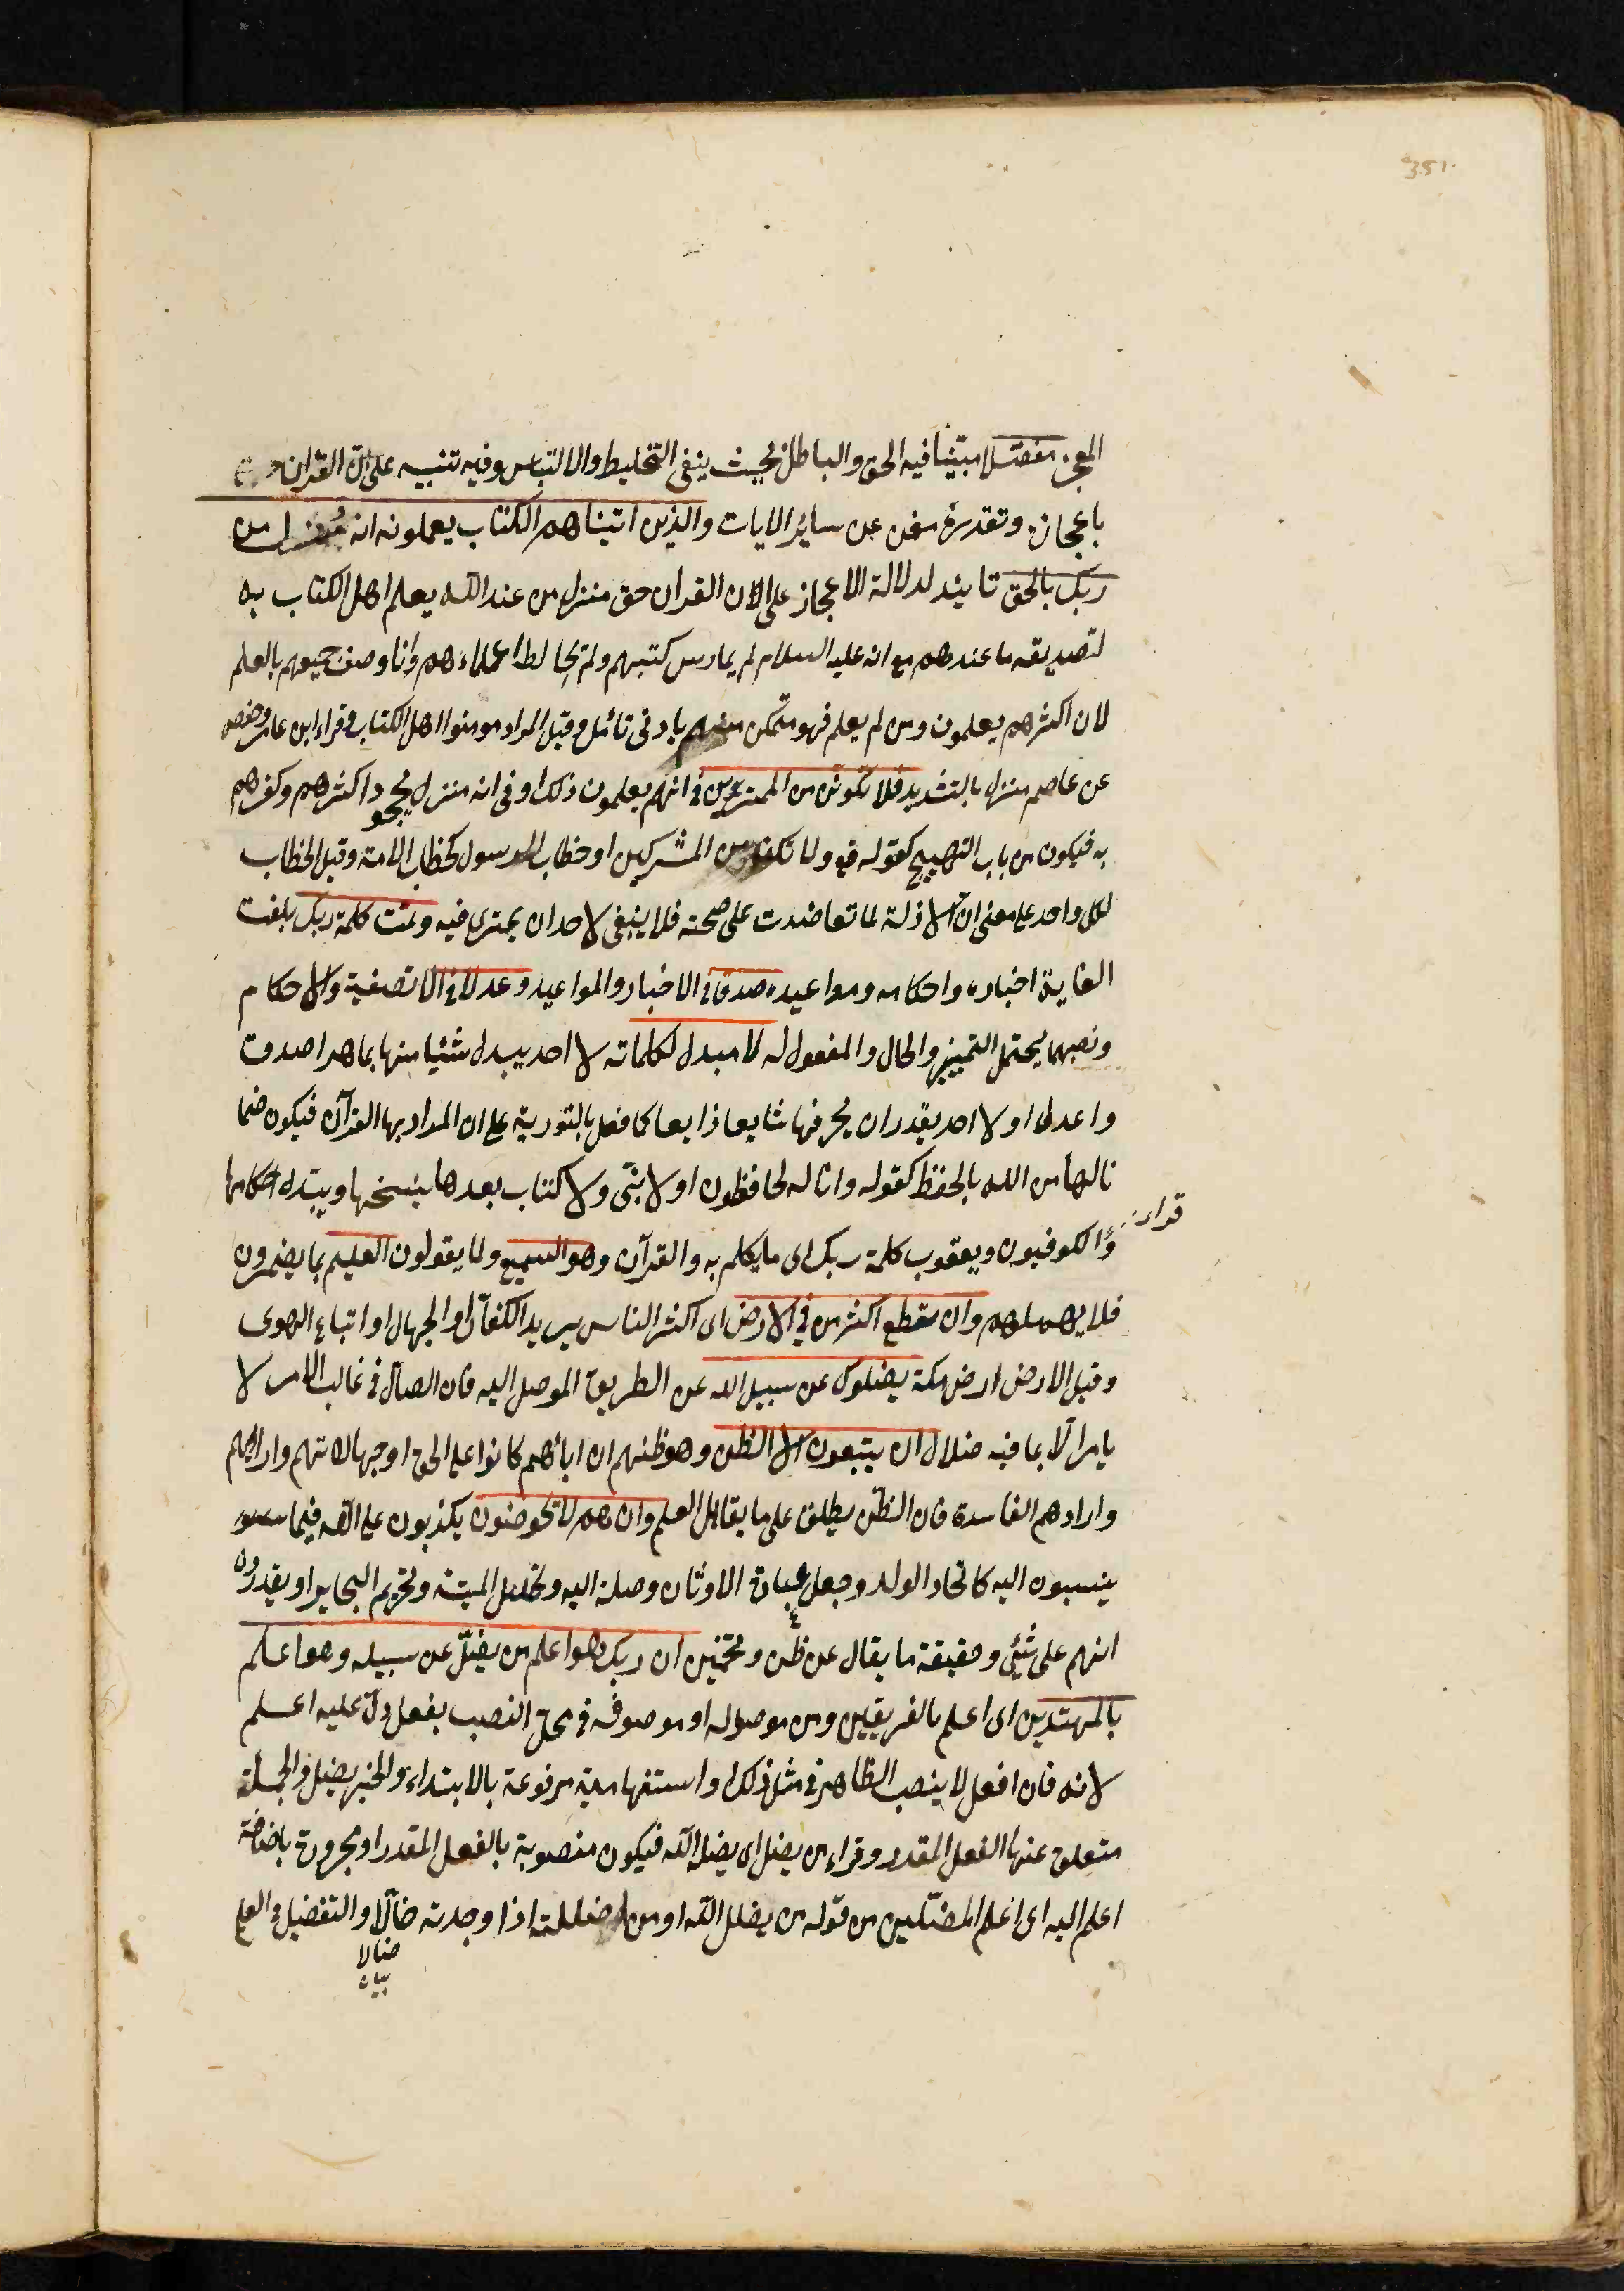 351
المعجز مفصلا مبينا فيه الحق والباطل بحيث ينفى التخليط والالتباس وفيه تنبيه على ان القرآن
باعجازه وتقديره مغن عن ساير الايات والذين اتيناهم الكتاب يعملونه انه منزل من
ربك بالحق تائيد لدلالة الاعجاز على الان القران حق منزل من عند الله يعلم اهل الكتاب به
لتصديقه ما عندهم مع انه عليه السلام لم يمارس كتبهم ولم يخالط علماءهم وانما وصف جميعهم بالعلم
لان اكثرهم يعلمون ومن لم يعلم فهو متمكن منهم بادنى تائمل وقيل المراد مومنوا اهل الكتاب وقراء ابن عامر وحفص
عن عاصم منزل بالتشديد فلا تكونن من الممترين فى انهم يعلمون ذلك او فى انه منزل يجحود اكثرهم وكفرهم
به فيكون من باب التهييج كقوله ولا تكونن من المشركين او خطاب الرسول كخطاب الامة وقيل الخطاب
لكل واحد على معنى ان الادلة لما تعاضدت على صحته فلا ينبغى لاحد ان يمترى فيه وتمت كلمة ربك بلغت
الغاية اخباره واحكامه ومواعيده صدقا فى الاخبار والمواعيد وعدلا فى الاقضية والاحكام
ونصبهما يحتمل التمييز والحال والمفعول له لا مبدل لكلماته لا احد يبدل شئيا منها بما هو اصدق
واعدل او لا احد يقدر ان يحرفها شايعا ذايعا كما فعل بالتورية على ان المراد بها القرآن فيكون ضما
نا لها من الله بالحفظ كقوله وانا له لحافظون او لا نبى ولا كتاب بعدها ينسخها ويبدل احكامها
قراء
وا الكوفيون ويعقوب كلمة ربك اى ما يكلم به والقرآن وهو السميع ولما يقولون العليم بما يضمرون
فلا يهملهم وان تطع اكثر من فى الارض اى اكثر الناس يريد الكفار او الجهال او اتباع الهوى
وقيل الارض ارض مكة يضلوك عن سبيل الله عن الطريق الموصل اليه فان الضال فى غالب الامر لا
يامر الا بما فيه ضلال ان يتبعون الا الظن وهو ظنهم ان ابائهم كانوا على الحق او جهالاتهم واراءهم
واراءهم الفاسدة فان الظن يطلق على ما يقابل العلم وان هم لا يخرصون يكذبون على الله فيما
ينسبون اليه كاتخاذ الولد وجعل عبادة الاوثان وصلة اليه وتحليل الميتة وتحريم البحاير او يقدرون
انهم على شئى وحقيقة ما يقال عن ظن وتخمين ان ربك هو اعلم من يضل عن سبيله وهو اعلم
بالمهتدين اى اعلم بالفريقين ومن موصوله او موصوفه فى محل النصب بفعل دل عليه اعلم
لانه فان افعل لا ينصب الظاهر فى مثل ذلك او استفهامية مرفوعة بالابتداء والخبر يضل والجملة
متعلق عنها الفعل المقدر وقراء من يضل اى يضله الله فيكون منصوبة بالفعل المقدر او مجرورة باضافة
اعلم اليه اى اعلم المضلين من قوله من يضلل الله او من اضللته اذا وجدته ضالا والتفضيل فى العلم
ضالا
بيان